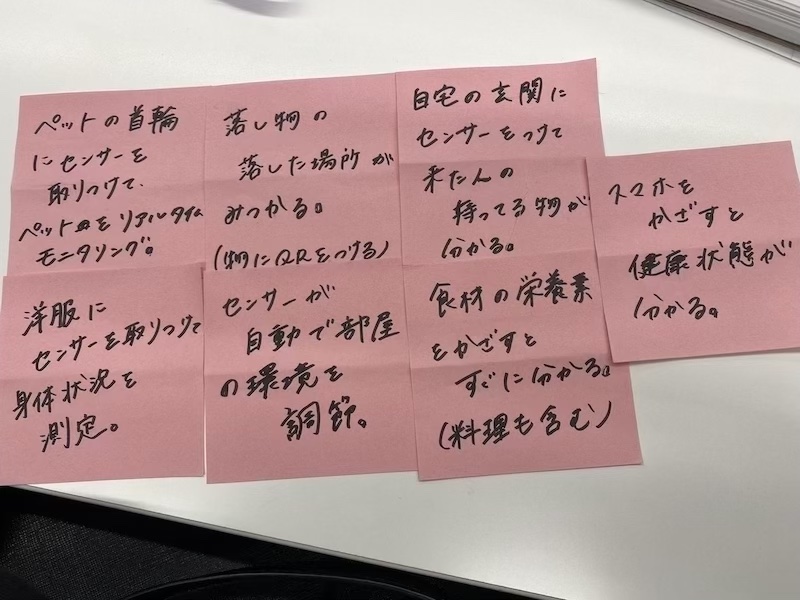 ペットの首輪
にセンサーを
取りつけて、
ペットをリアルタイム
モニタリング。
落し物の
落した場所が
みつかる。
(物にQRをつける)
自宅の玄関に
センサーをつけて
来たんの
持ってる物が
分かる。
スマホを
かざすと
健康状態が
分かる。
洋服に
センサーを取りつけて
身体状況を
測定。
センサーが
自動で部屋
の環境を
調節。
食材の栄養素
をかざすと
すぐに分かる。
(料理も含む)